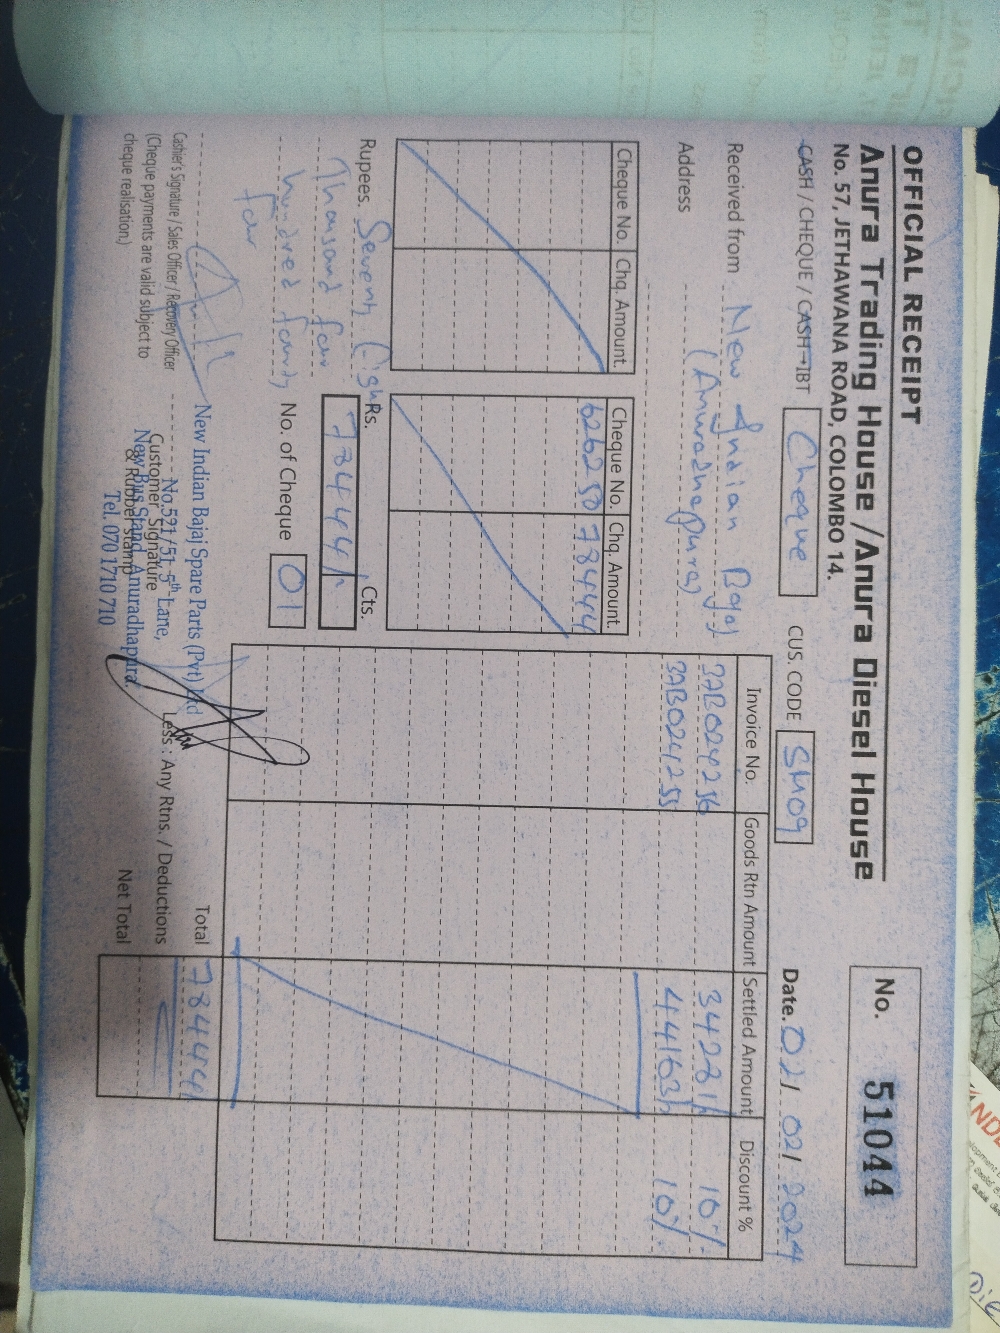 OFFICIAL RECEIPT
Anura Trading House / Anura Diesel House
No. 57, JETHAWANA ROAD, COLOMBO 14.
No. 51044
CASH / CHEQUE / CASH→IBT Cheque CUS. CODE SH09 Date. 02/ 02/ 2024
Received from New Indian Bajaj
Address (Anuradhapura)
Cheque No. Chq. Amount.
Cheque No. Chq. Amount.
626250 78444
Invoice No. Goods Rtn Amount Settled Amount Discount %
3AB024256 34281/- 10%
3AB024255 44163/- 10%
Rupees. Seventy Eight
Thousand four
hundred fourty
four
Rs. Cts.
78444/-
No. of Cheque 01
Total 78444/-
Less : Any Rtns. / Deductions
Net Total
Cashier's Signature / Sales Officer / Recovery Officer
(Cheque payments are valid subject to
cheque realisation.)
Customer Signature
& Rubber Stamp
New Indian Bajaj Spare Parts (Pvt) Ltd
No.521/51, 5th Lane,
New Bus Stand, Anuradhapura.
Tel. 070 1710 710